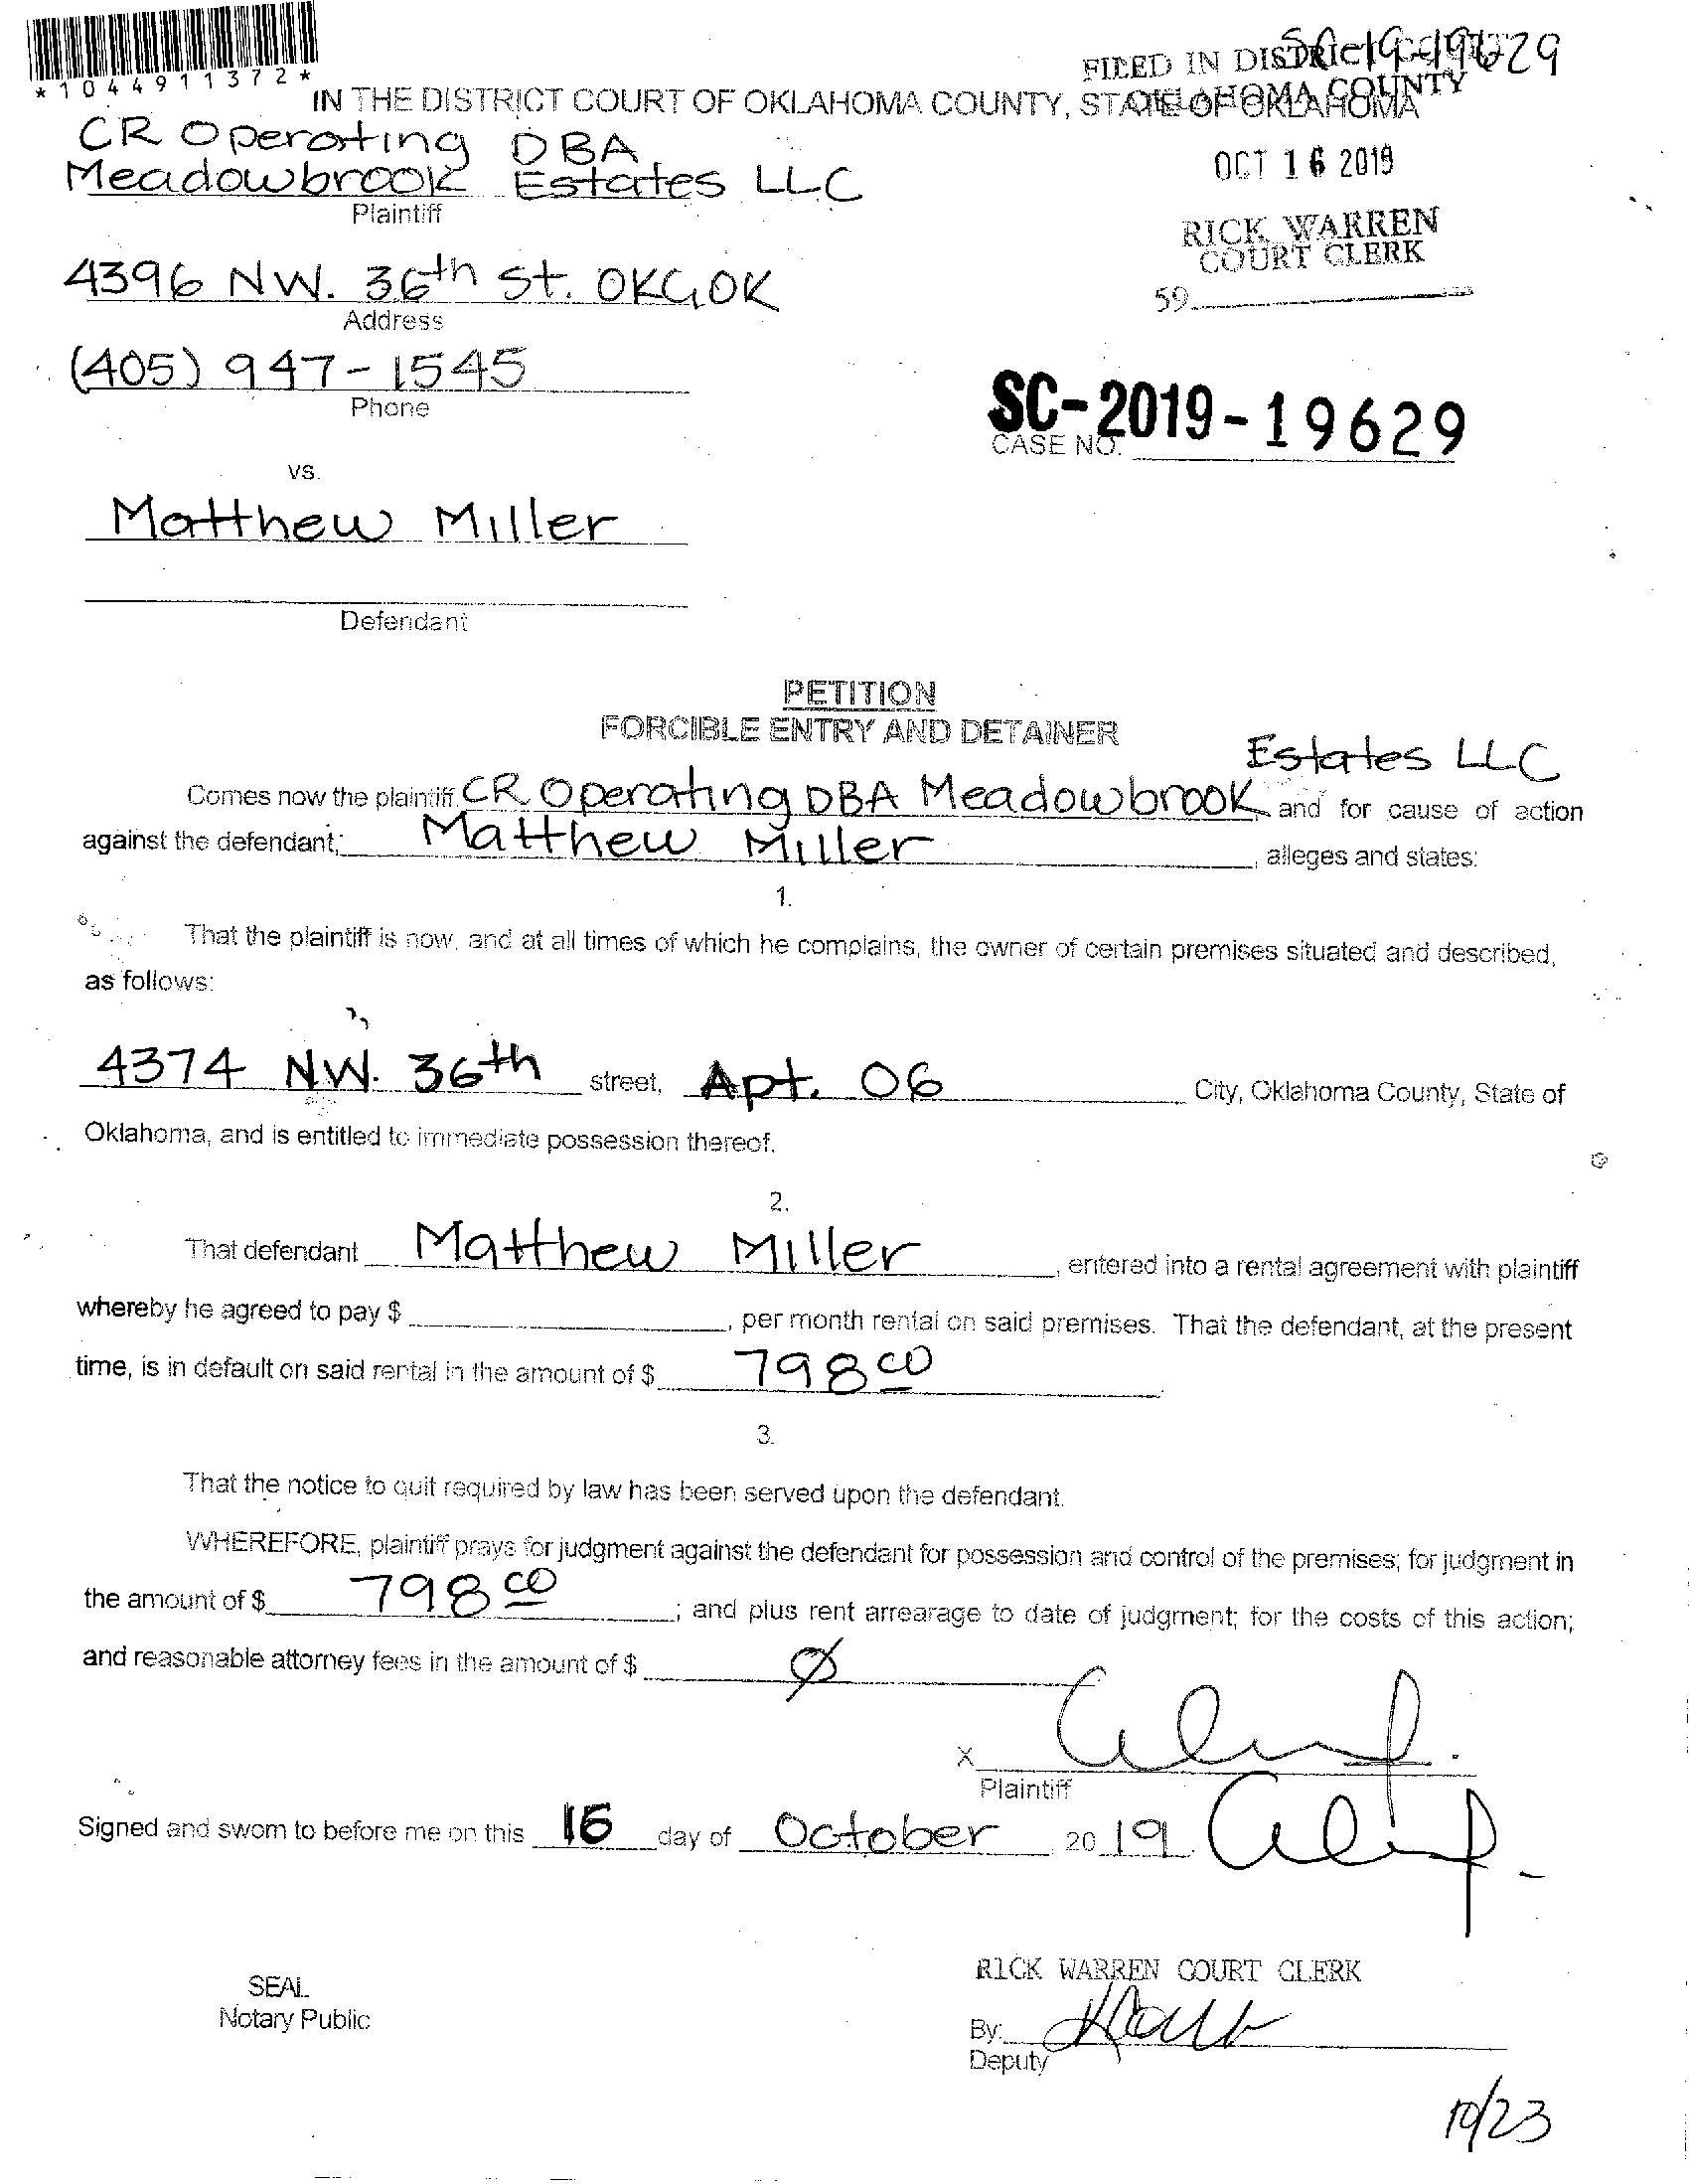 *1044911372*
SC-19-19629
FILED IN DISTRICT COURT
OKLAHOMA COUNTY
IN THE DISTRICT COURT OF OKLAHOMA COUNTY, STATE OF OKLAHOMA
CR Operating DBA
Meadowbrook Estates LLC
Plaintiff
OCT 16 2019
RICK WARREN
COURT CLERK
59
4396 NW. 36th St. OKC, OK
Address
(405) 947-1545
Phone
SC-2019-19629
CASE NO.
vs.
Matthew Miller
Defendant
PETITION
FORCIBLE ENTRY AND DETAINER
Estates LLC
Comes now the plaintiff CR Operating DBA Meadowbrook, and for cause of action
against the defendant; Matthew Miller, alleges and states:
1.
That the plaintiff is now, and at all times of which he complains, the owner of certain premises situated and described,
as follows:
4374 NW. 36th street, Apt. 06 City, Oklahoma County, State of
Oklahoma, and is entitled to immediate possession thereof.
2.
That defendant Matthew Miller, entered into a rental agreement with plaintiff
whereby he agreed to pay $ , per month rental on said premises. That the defendant, at the present
time, is in default on said rental in the amount of $ 798 00
3.
That the notice to quit required by law has been served upon the defendant.
WHEREFORE, plaintiff prays for judgment against the defendant for possession and control of the premises; for judgment in
the amount of $ 798 00; and plus rent arrearage to date of judgment; for the costs of this action;
and reasonable attorney fees in the amount of $ Ø
X
Plaintiff
Signed and sworn to before me on this 16 day of October 20 19.
RICK WARREN COURT CLERK
SEAL
Notary Public
By:
Deputy
10/23